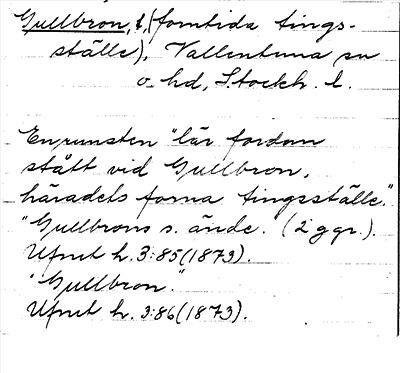 Gullbron, f, (forntida tings-
ställe), Vallentuna sn
o. hd, Stockh. l.
En runsten "lär fordom
stått vid Gullbron,
häradets forna tingsställe."
"Gullbrons s. ände. (2 ggr.).
Ufmt h. 3:85 (1873).
"Gullbron."
Ufmt h. 3:86 (1873).